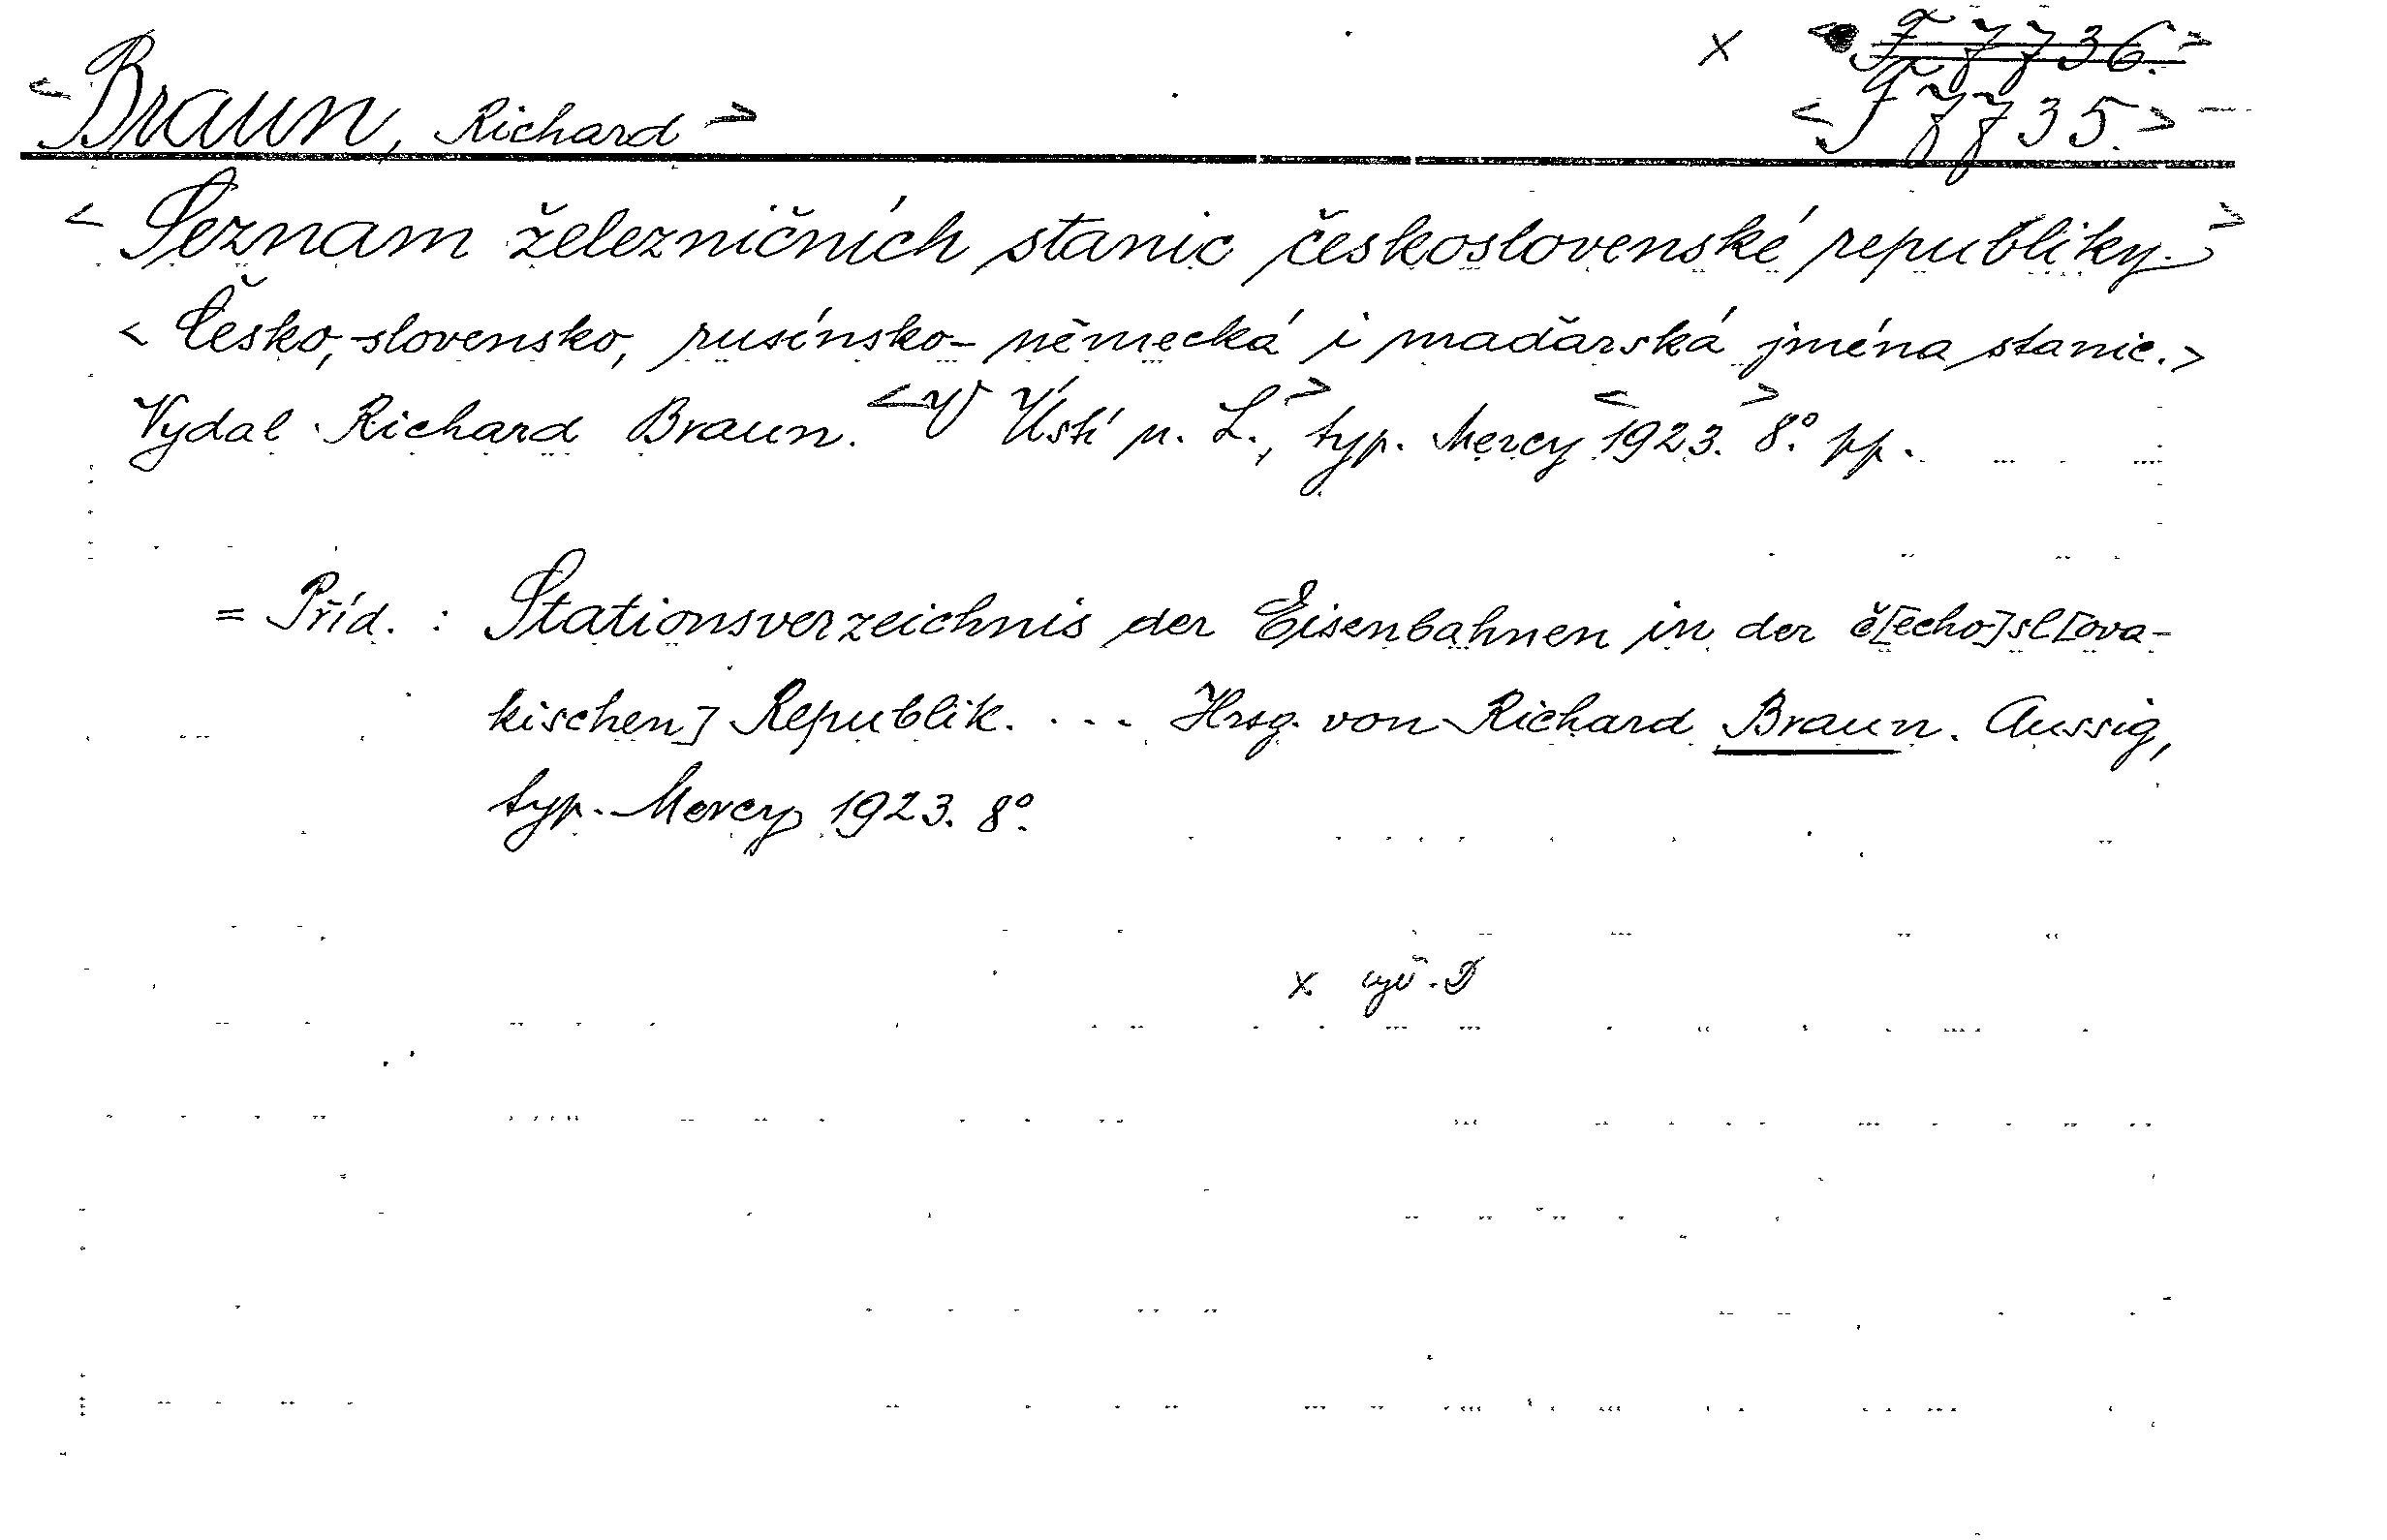 x <F 7736.>
<Braun, Richard> <F 7735.>
<Seznam železničních stanic československé republiky.>
<Česko,-slovensko, rusínsko-německá i maďarská jména stanic.>
Vydal Richard Braun. <V Ústí n. L.,> typ. Mercy <1923.> 8°. pp.
= Příd. : Stationsverzeichnis der Eisenbahnen in der č[echo]sl[ova-
kischen] Republik. ... Hrsg. von Richard Braun. Aussig,
typ. Mercy 1923. 8°.
x